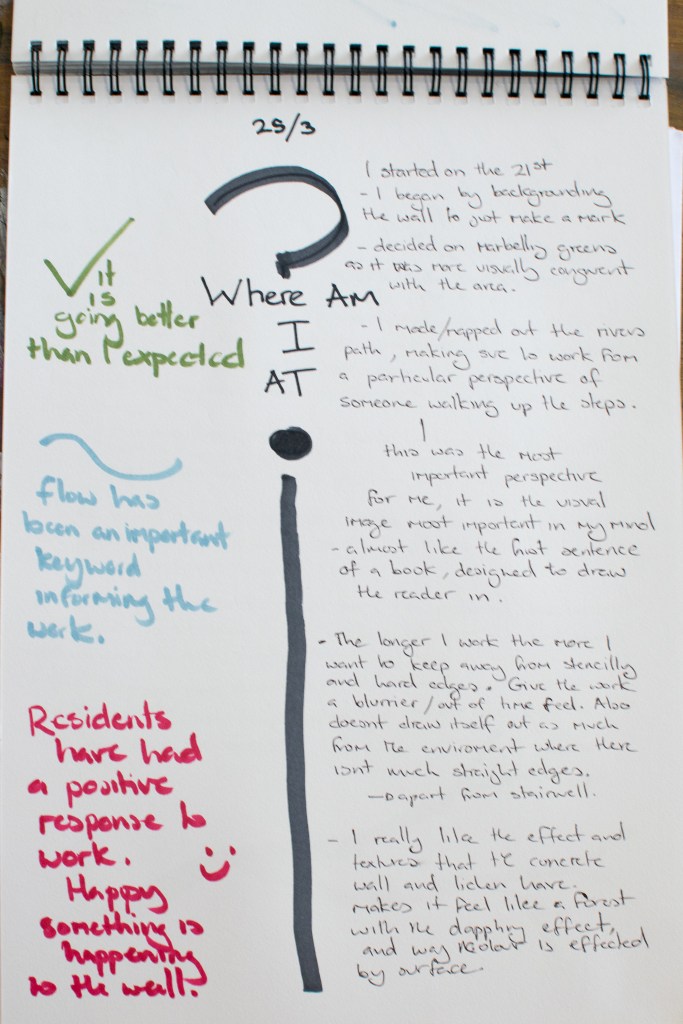 25/3
Where AM
I
AT
it
is
going better
than I expected
flow has
been an important
keyword
informing the
work.
Residents
have had
a positive
response to
work.
Happy
something is
happening
to the wall.
I started on the 21st
- I began by backgrounding
the wall to just make a mark
- decided on Marbelly greens
as it was more visually congruent
with the area.
- I made/mapped out the rivers
path, making sure to work from
a particular perspective of
someone walking up the steps.
this was the most
important perspective
for me, it is the visual
image most important in my mind
- almost like the first sentence
of a book, designed to draw
the reader in.
- The longer I work the more I
want to keep away from stencilly
and hard edges. Give the work
a blurrier/out of time feel. Also
doesnt draw itself out as much
from the enviroment where there
isnt much straight edges.
apart from stairwell.
- I really like the effect and
textures that the concrete
wall and lichen have.
makes it feel like a forest
with the dapply effect,
and way colour is effected
by surface.